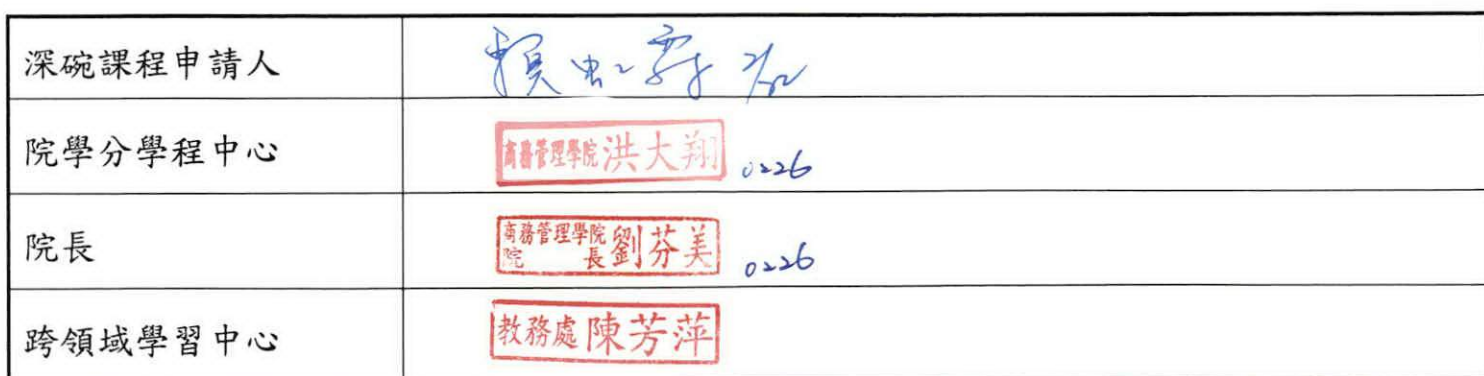 深碗課程申請人 賴虹霖
院學分學程中心 商務管理學院洪大翔 0226
院長 商務管理學院院長劉芬美 0226
跨領域學習中心 教務處陳芳萍